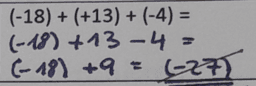 (-18) + (+13) + (-4) =
(-18) + 13 - 4 =
(-18) + 9 = (-27)